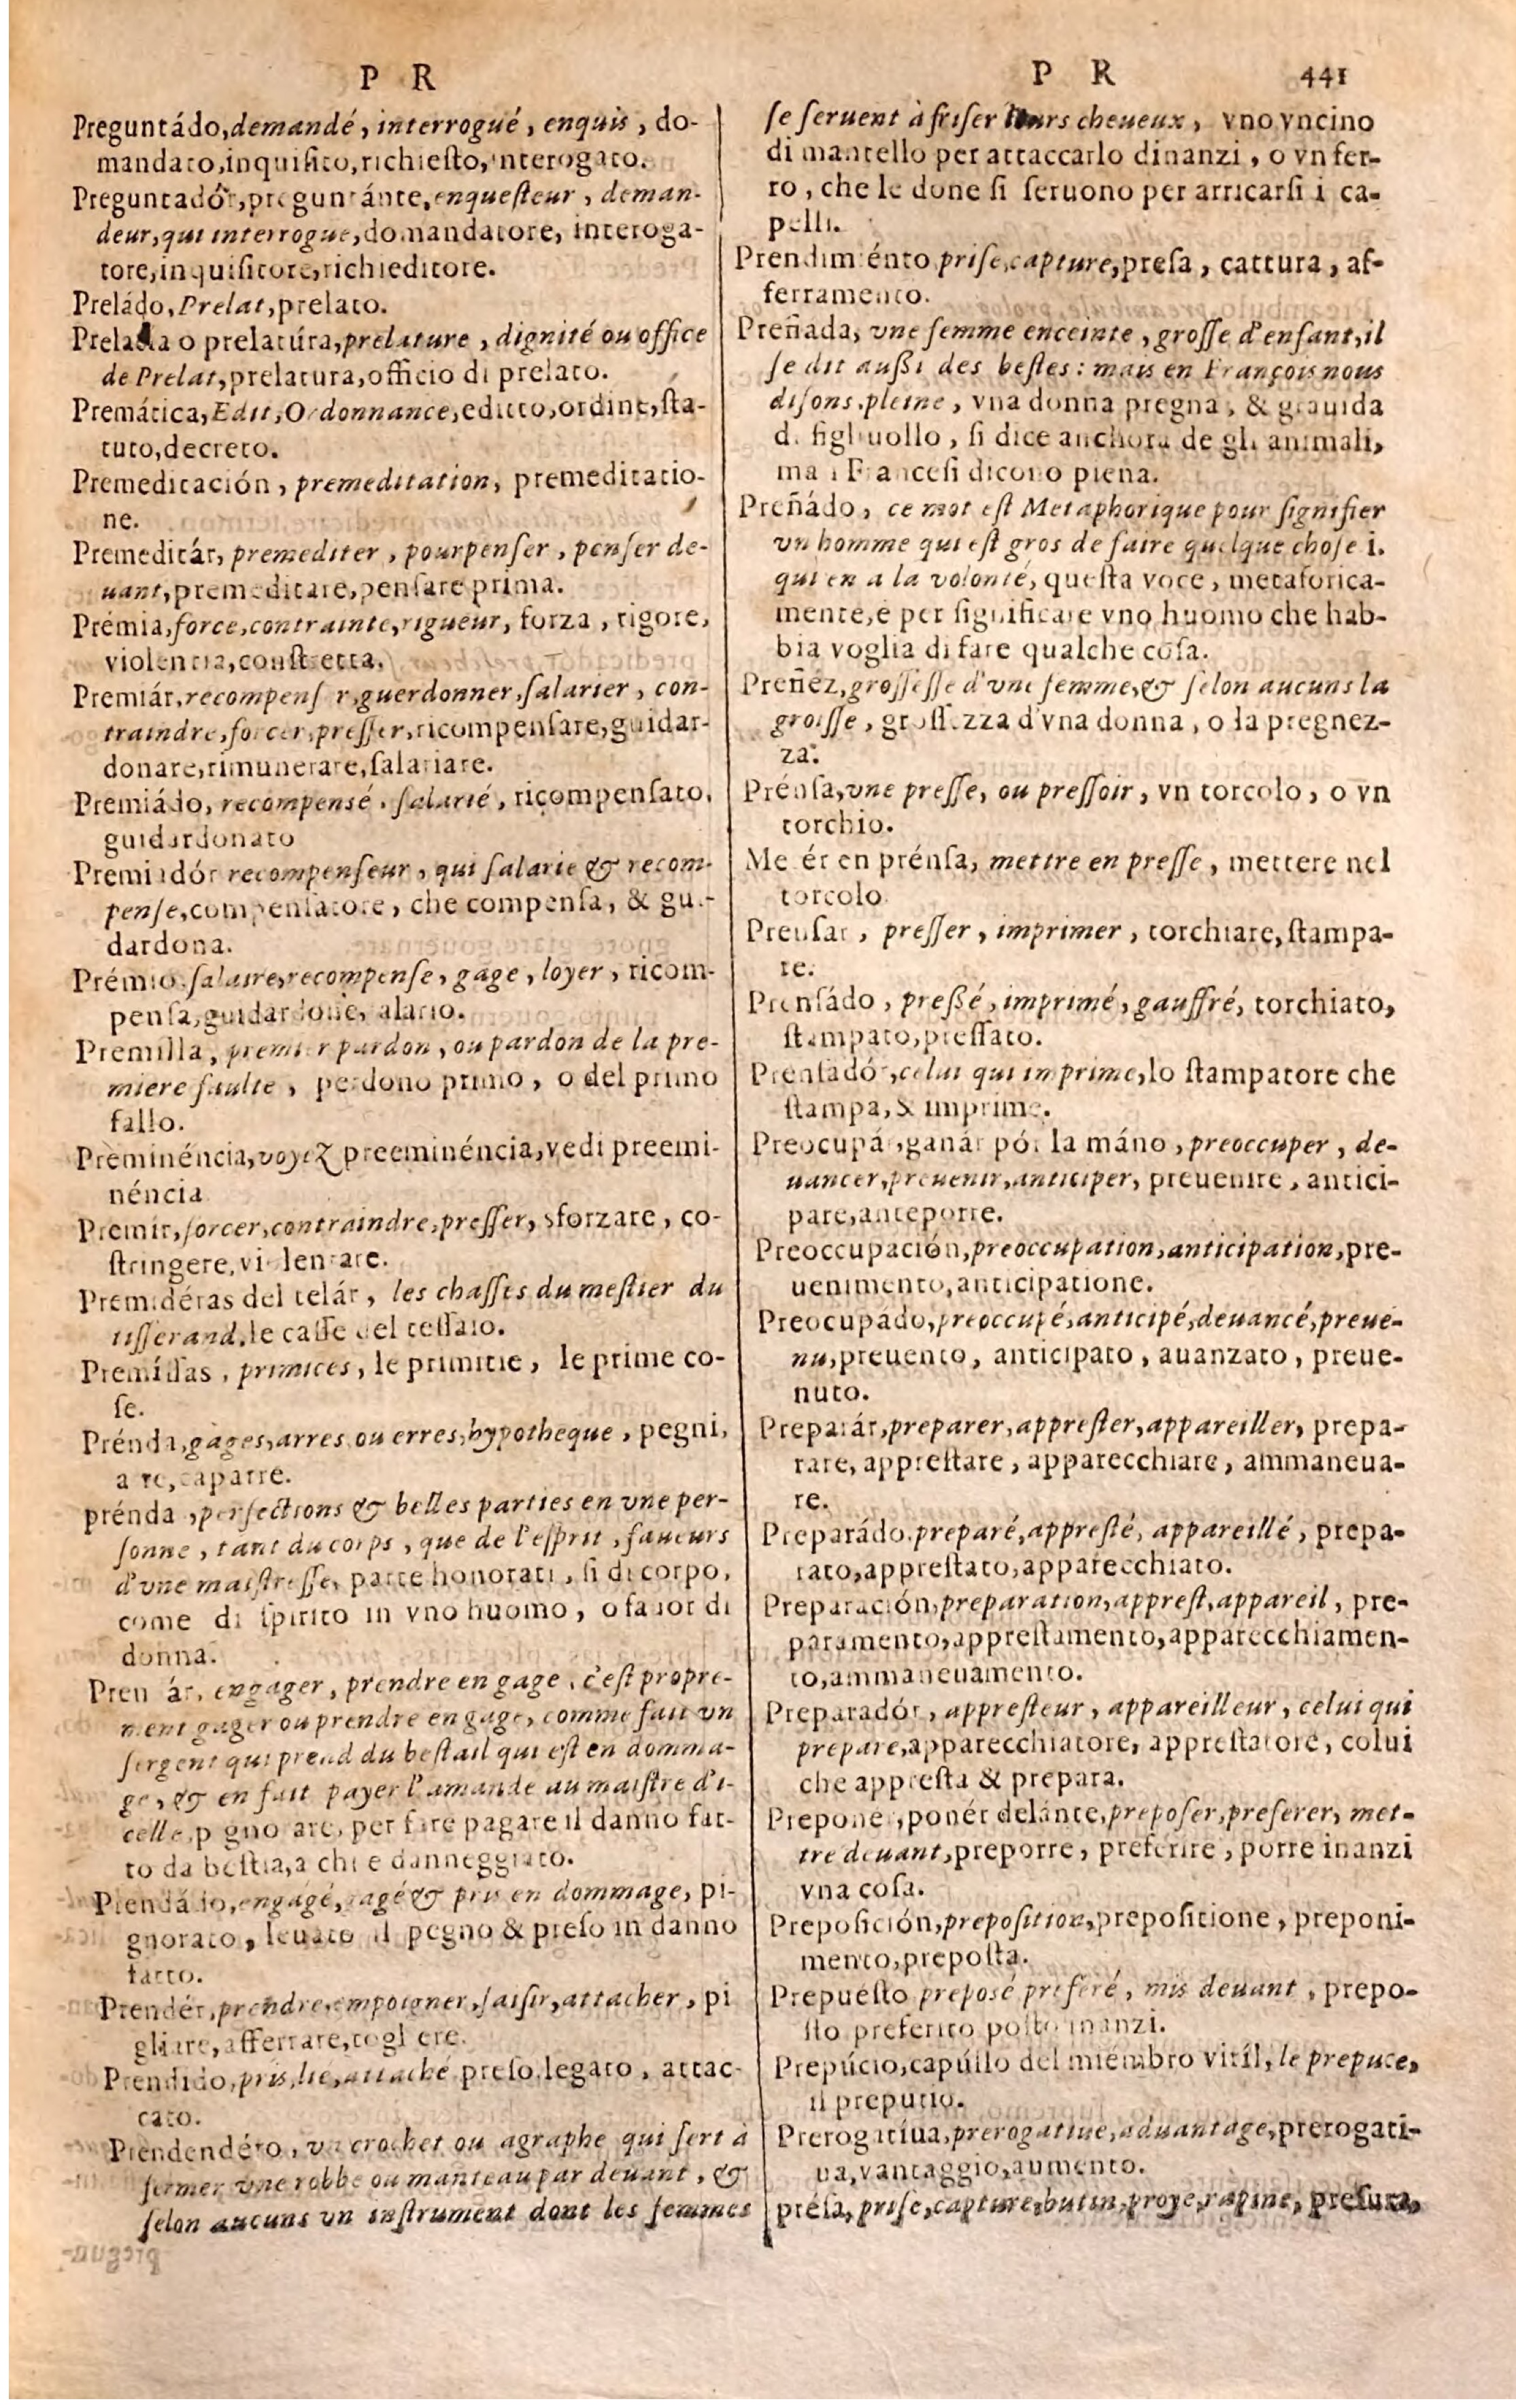 P R
Preguntádo, demandé, interrogué, enquis, do-
mandato, inquisito, richiesto, interogato.
Preguntadór, preguntánte, enquesteur, deman-
deur, qui interrogue, domandatore, interoga-
tore, inquisitore, richieditore.
Preládo, Prelat, prelato.
o prelatúra, prelature, dignité ou office
de Prelat, prelatura, officio di prelato.
Premática, Edit, Ordonnance, editto, ordine, sta-
tuto, decreto.
Premeditación, premeditation, premeditatio-
ne.
Premeditár, premediter, pourpenser, penser de-
uant, premeditare, pensare prima.
Prémia, force, contrainte, rigueur, forza, rigore,
violentia, constretta.
Premiár, recompenser, guerdonner, salarier, con-
traindre, forcer, presser, ricompensare, guidar-
donare, rimunerare, salariare.
Premiádo, recompensé, salarié, ricompensato,
guidardonato
Premiadór recompenseur, qui salarie & recom-
pense, compensatore, che compensa, & gui-
dardona.
Prémio salaire, recompense, gage, loyer, ricom-
pensa, guidardone, alario.
Premilla, premier pardon, ou pardon de la pre-
miere faulte, perdono primo, o del primo
fallo.
Preminéncia, voyez preeminéncia, vedi preemi-
néncia
Premir, forcer, contraindre, presser, sforzare, co-
stringere, violentare.
Premidéras del telár, les chasses du mestier du
tisserand, le casse del tessaio.
Premíssas, primices, le primitie, le prime co-
se.
Prénda, gages, arres ou erres, hypotheque, pegni,
a re, caparre.
prénda, perfections & belles parties en vne per-
sonne, tant du corps, que de l'esprit, faueurs
d'vne maistresse, parte honorati, si di corpo,
come di spirito in vno huomo, o fauor di
donna.
Pren ár, engager, prendre en gage, c'est propre-
ment gager ou prendre en gage, comme fait vn
sergent qui prend du bestail qui est en domma-
ge, & en fait payer l'amande au maistre d'i-
celle, p gno are, per fare pagare il danno fat-
to da bestia, a chi e danneggiato.
Prendádo, engagé, gagé & pris en dommage, pi-
gnorato, leuato il pegno & preso in danno
fatto.
Prendér, prendre, empoigner, saisir, attacher, pi
gliare, afferrare, togl ere.
Prendido, pris, lié, attaché preso, legato, attac-
cato.
Prendendéro, vn crochet ou agraphe qui sert à
fermer vne robbe ou manteau par deuant, &
selon aucuns vn instrument dont les femmes
P R 441
se seruent à friser leurs cheueux, vno vncino
di mantello per attaccarlo dinanzi, o vn fer-
ro, che le done si seruono per arricarsi i ca-
pelli.
Prendimiénto prise, capture, presa, cattura, af-
ferramento.
Preñada, vne femme enceinte, grosse d'enfant, il
se dit aussi des bestes: mais en François nous
disons pleine, vna donna pregna, & grauida
di figliuollo, si dice anchora de gli animali,
ma i Francesi dicono piena.
Preñádo, ce mot est Metaphorique pour signifier
vn homme qui est gros de faire quelque chose i.
qui en a la volonté, questa voce, metaforica-
mente, è per significare vno huomo che hab-
bia voglia di fare qualche cosa.
Preñéz, grossesse d'vne femme, & selon aucuns la
groisse, grossezza d'vna donna, o la pregnez-
za.
Prénsa, vne presse, ou pressoir, vn torcolo, o vn
torchio.
Me ér en prénsa, mettre en presse, mettere nel
torcolo
Prensar, presser, imprimer, torchiare, stampa-
re.
Prensádo, pressé, imprimé, gauffré, torchiato,
stampato, pressato.
Prensadór, celui qui imprime, lo stampatore che
stampa, & imprime.
Preocupár, ganár pór la máno, preoccuper, de-
uancer, preuenir, anticiper, preuenire, antici-
pare, anteporre.
Preoccupación, preoccupation, anticipation, pre-
uenimento, anticipatione.
Preocupádo, preoccupé, anticipé, deuancé, preue-
nu, preuento, anticipato, auanzato, preue-
nuto.
Preparár, preparer, apprester, appareiller, prepa-
rare, apprestare, apparecchiare, ammaneua-
re.
Preparádo, preparé, appresté, appareillé, prepa-
rato, apprestato, apparecchiato.
Preparación, preparation, apprest, appareil, pre-
paramento, apprestamento, apparecchiamen-
to, ammaneuamento.
Preparadór, appresteur, appareilleur, celui qui
prepare, apparecchiatore, apprestatore, colui
che appresta & prepara.
Preponer, ponér delánte, preposer, preferer, met-
tre deuant, preporre, preferire, porre inanzi
vna cosa.
Preposición, preposition, prepositione, preponi-
mento, preposta.
Prepuésto preposé preferé, mis deuant, prepo-
sto preferito posto inanzi.
Prepúcio, capúllo del miémbro viríl, le prepuce,
il preputio.
Prerogatíua, prerogatiue, aduantage, prerogati-
ua, vantaggio, aumento.
présa, prise, capture, butin, proye, rapine, presura,